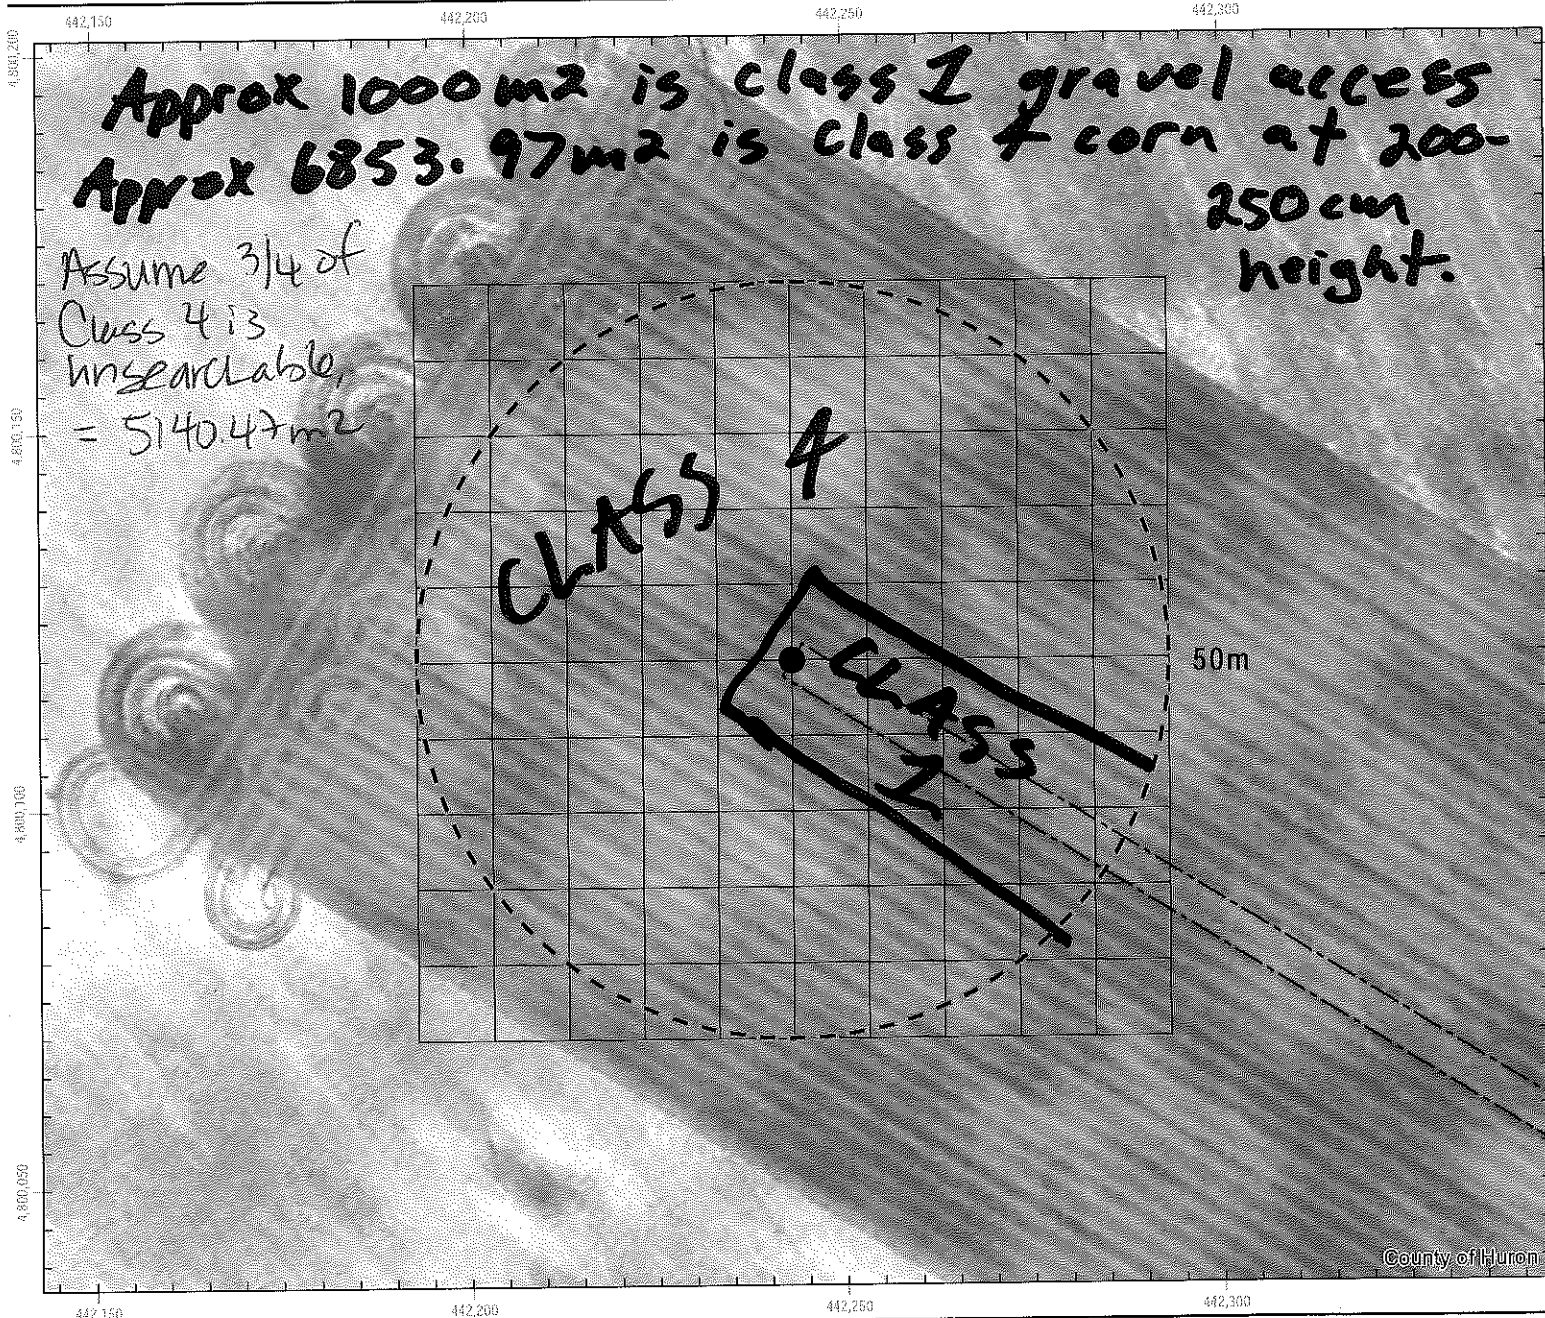 442,150 442,200 442,250 442,300
4,800,200
Approx 1000m2 is class 1 gravel access
Approx 6853.97m2 is class 4 corn at 200-
250cm
height.
Assume 3/4 of
Class 4 is
unsearchable,
= 5140.47m2
4,800,150
CLASS 4
CLASS
1
50m
4,800,100
4,800,050
County of Huron
442,150 442,200 442,250 442,300